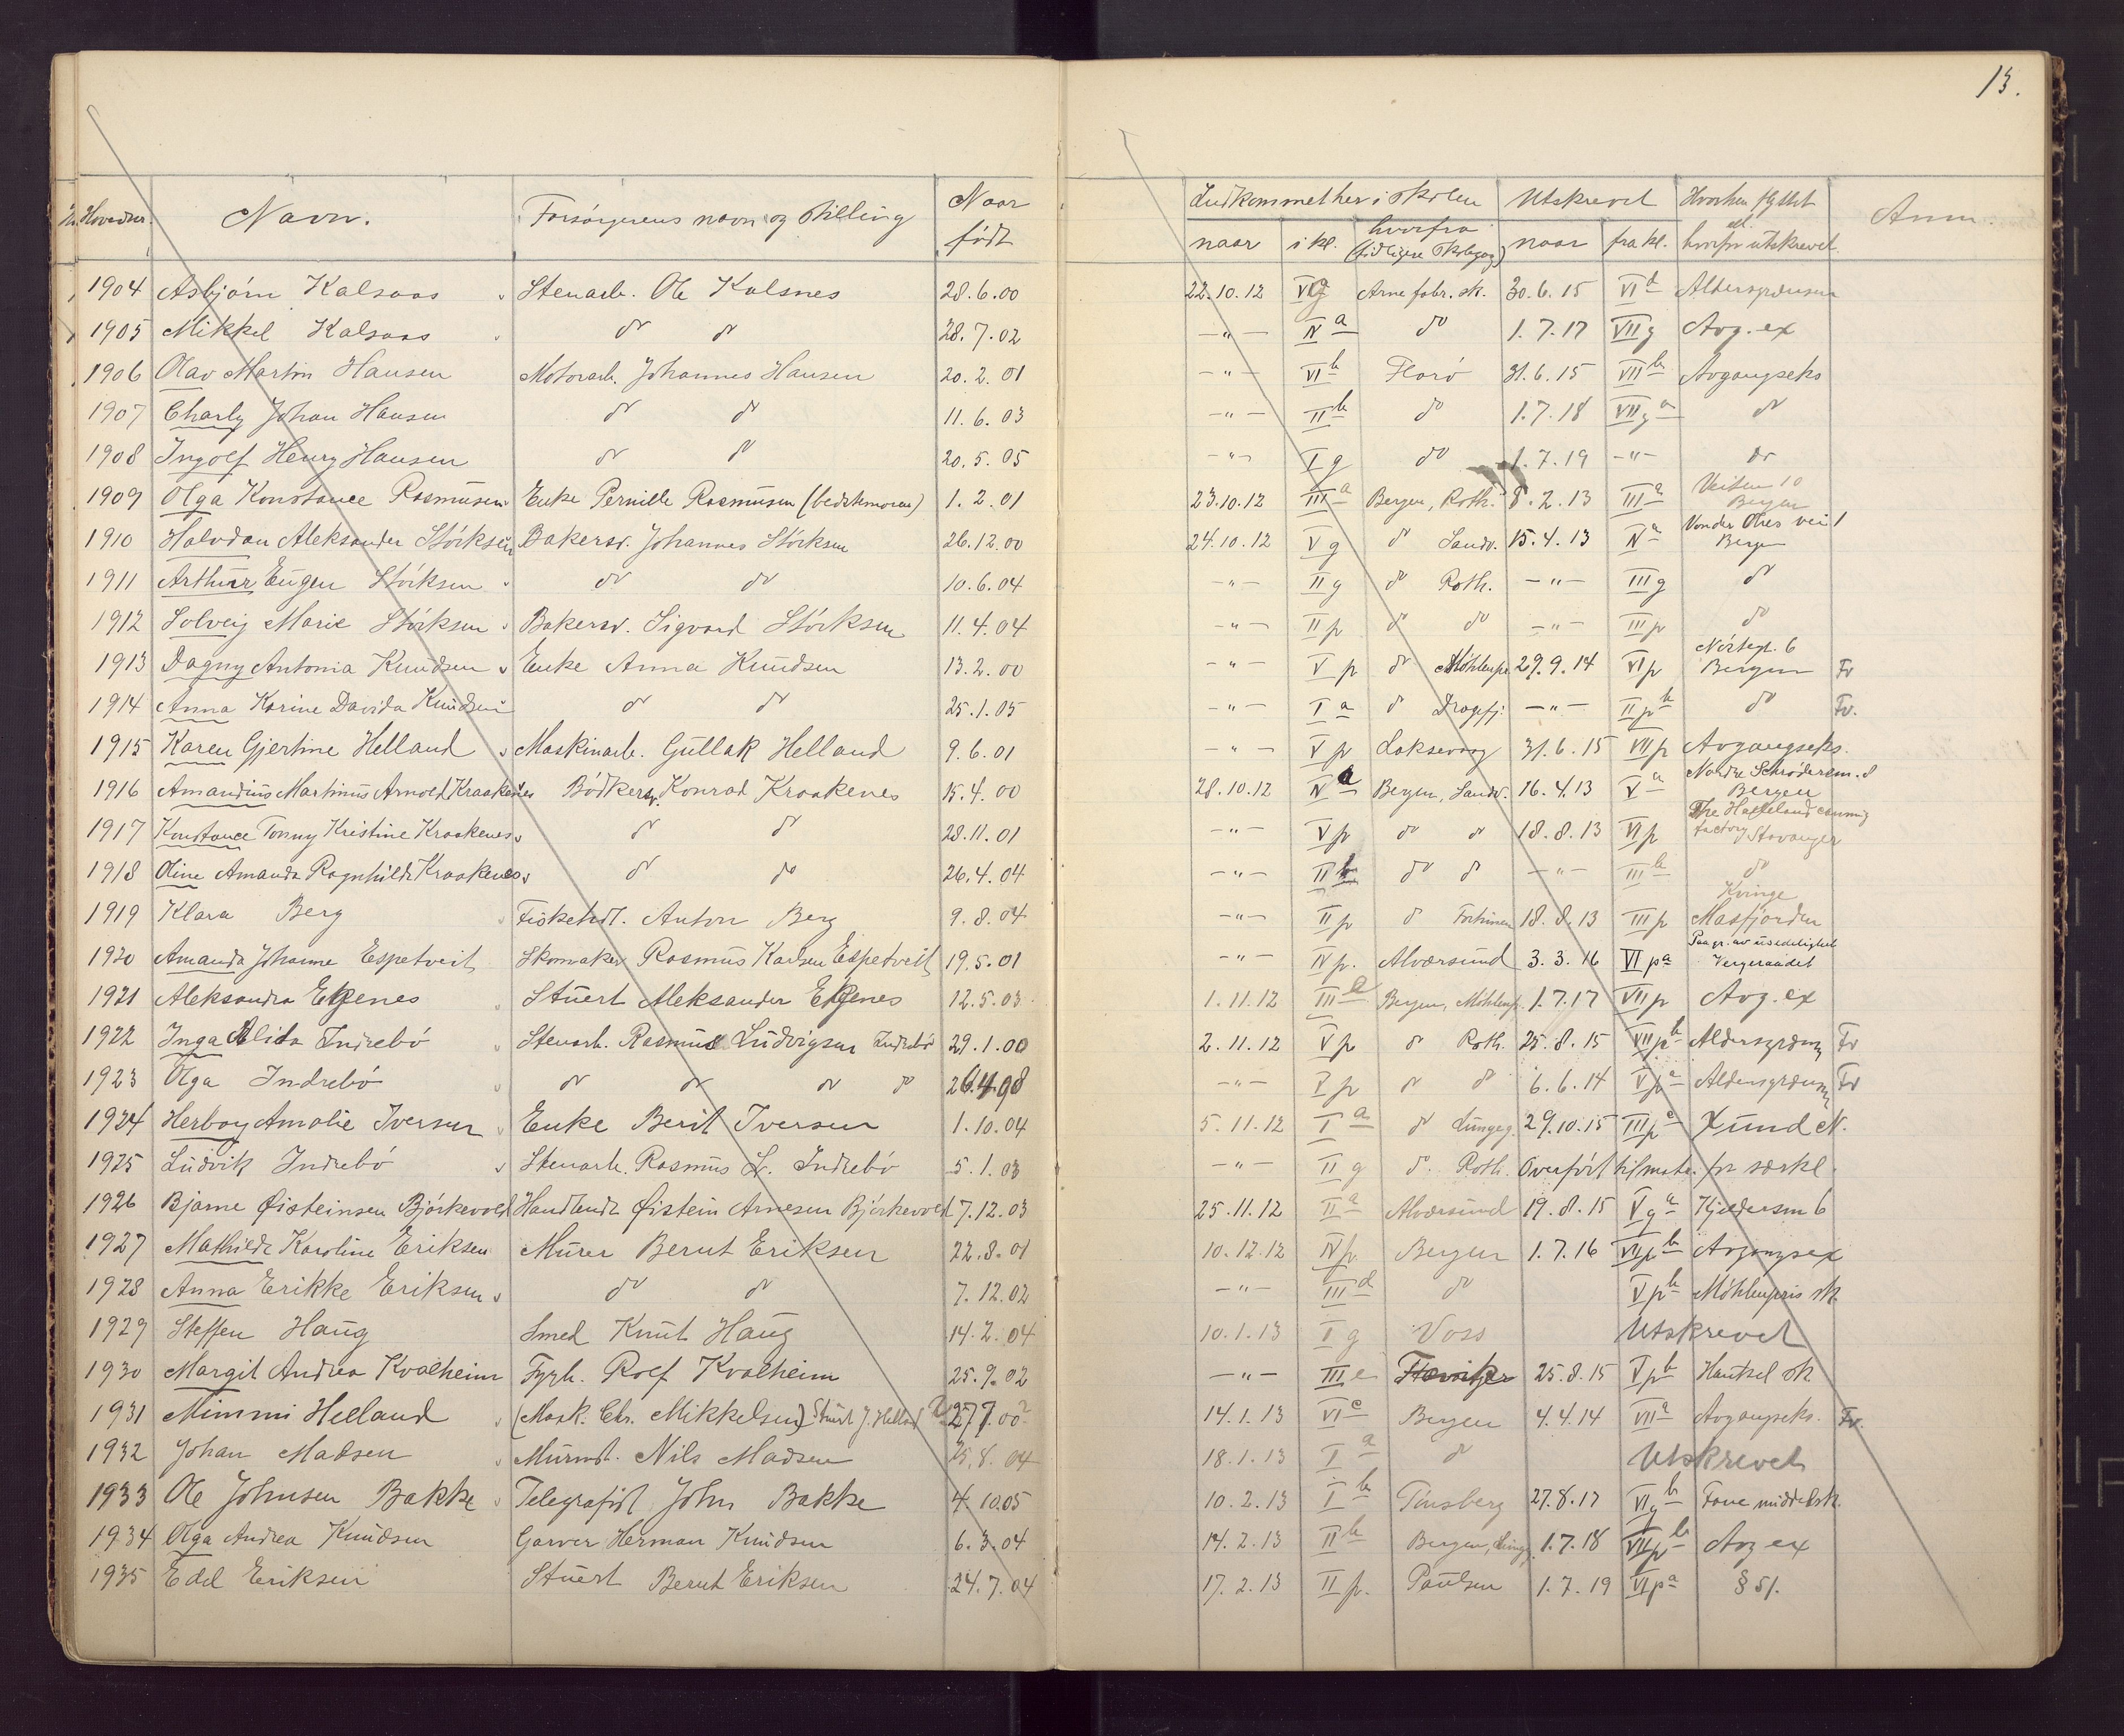 13.
Hovednr. Navn. Forsørgerens navn og stilling Naar født Indkommet her i skolen Utskrevet Hvorhen flyttet el. hvorfor utskrevet Anm.
naar i kl. hvorfra (tidligere skolegang) naar fra kl.
1904 Asbjørn Kalsaas Stenarb. Ole Kalsnes 28.6.00 22.10.12 V g Arne fabr. sk. 30.6.15 VI d Aldersgrænsen
1905 Mikkel Kalsaas do do 28.7.02 -"- IV a do 1.7.17 VII g Avg. ex
1906 Olav Martin Hansen Motorarb. Johannes Hansen 20.2.01 -"- VI b Florø 31.6.15 VII b Avgangseks
1907 Charly Johan Hansen do do 11.6.03 -"- II b do 1.7.18 VII g a do
1908 Ingolf Henry Hansen do do 20.5.05 -"- I g do 1.7.19 -"- do
1909 Olga Konstance Rasmussen Enke Pernille Rasmussen (bedstemoren) 1.2.01 23.10.12 III a Bergen, Roth. 8.2.13 III a Veiten 10 Bergen
1910 Halvdan Aleksander Størksen Bakersv. Johannes Størksen 26.12.00 24.10.12 V g do Sandv. 15.4.13 IV a Von der Ohes vei 1 Bergen
1911 Arthur Eugen Størksen do do 10.6.04 -"- II g do Roth. -"- III g do
1912 Solveig Marie Størksen Bakersv. Sigvard Størksen 11.4.04 -"- II p do do -"- III p do
1913 Dagny Antonia Knudsen Enke Anna Knudsen 13.2.00 -"- V p do Møhlenpr 29.9.14 VI p Nóstegt. 6 Bergen Fv
1914 Anna Karine Davida Knudsen do do 25.1.05 -"- I a do Dragefj. -"- II p b do Fv.
1915 Karen Gjertine Helland Maskinarb. Gullak Helland 9.6.01 -"- V p Laksevaag 31.6.15 VII p Avgangseks.
1916 Amandius Martinus Arnold Kraakenes Bødkersv. Konrad Kraakenes 15.4.00 28.10.12 IV a Bergen, Sandv. 16.4.13 V a Nordre Schrøderem. 8 Bergen
1917 Konstance Tonny Kristine Kraakenes do do 28.11.01 -"- V p do do 18.8.13 VI p The Hafeland canning factory Stavanger
1918 Oline Amanda Ragnhild Kraakenes do do 26.4.04 -"- II b do do -"- III b do
1919 Klara Berg Fiskehdl. Anton Berg 9.8.04 -"- II p do Fortunen 18.8.13 III p Kvinge Masfjorden
1920 Amanda Johanne Espetveit Skomaker Rasmus Karsen Espetveit 19.5.01 -"- IV p. Alversund 3.3.16 VI p a Paa gr. av usedelighet Vergeraadet
1921 Aleksandra Elgenes Stuert Aleksander Elgenes 12.5.03 1.11.12 III e Bergen, Møhlenp. 1.7.17 VII p Avg. ex
1922 Inga Alida Indrebø Stenarb. Rasmus Ludvigsen Indrebø 29.1.00 2.11.12 V p do Roth. 25.8.15 VII p b Aldersgrænsen Fv
1923 Olga Indrebø do do do do 26.4.98 -"- V p do do 6.6.14 V p a Aldersgrænsen Fv
1924 Herbory Amalie Iversen Enke Berit Iversen 1.10.04 5.11.12 I a do Lungeg. 29.10.15 III p a
1925 Ludvik Indrebø Stenarb. Rasmus L. Indrebø 5.1.03 -"- II g do Roth. Overført til matr. for særkl.
1926 Bjarne Øisteinsen Bjørkevold Handlende Øistein Arnesen Bjørkevold 7.12.03 25.11.12 II a Alversund 19.8.15 V g a Kjeldersm 6
1927 Mathilde Karoline Eriksen Murer Bernt Eriksen 22.8.01 10.12.12 IV p Bergen 1.7.16 VII p b Avgangsex
1928 Anna Erikke Eriksen do do 7.12.02 -"- III d do V p b Møhlenpris sk.
1929 Steffen Haug Smed Knut Haug 14.2.04 10.1.13 I g Voss Utskrevet
1930 Margit Andrea Kvalheim Fyrb. Rolf Kvalheim 25.9.02 -"- III e 25.8.15 V p b Haukel sk
1931 Mimmi Helland (Mask. Chr. Mikkelsen) Stuert J. Helland 27.7.00 14.1.13 VI c Bergen 4.4.14 VII a Avgangseks. Fv.
1932 Johan Madsen Murmst. Nils Madsen 25.8.04 18.1.13 I a do Utskrevet
1933 Ole Johnsen Bakke Telegrafist John Bakke 4.10.05 10.2.13 I b Tønsberg 27.8.17 VI g b Fane middelsk.
1934 Olga Andrea Knudsen Garver Herman Knudsen 6.3.04 14.2.13 II b Bergen, Lungg. 1.7.18 VII p b Avg ex
1935 Edel Eriksen Stuert Bernt Eriksen 24.7.04 17.2.13 II p. Paulsen 1.7.19 VI p a § 51.